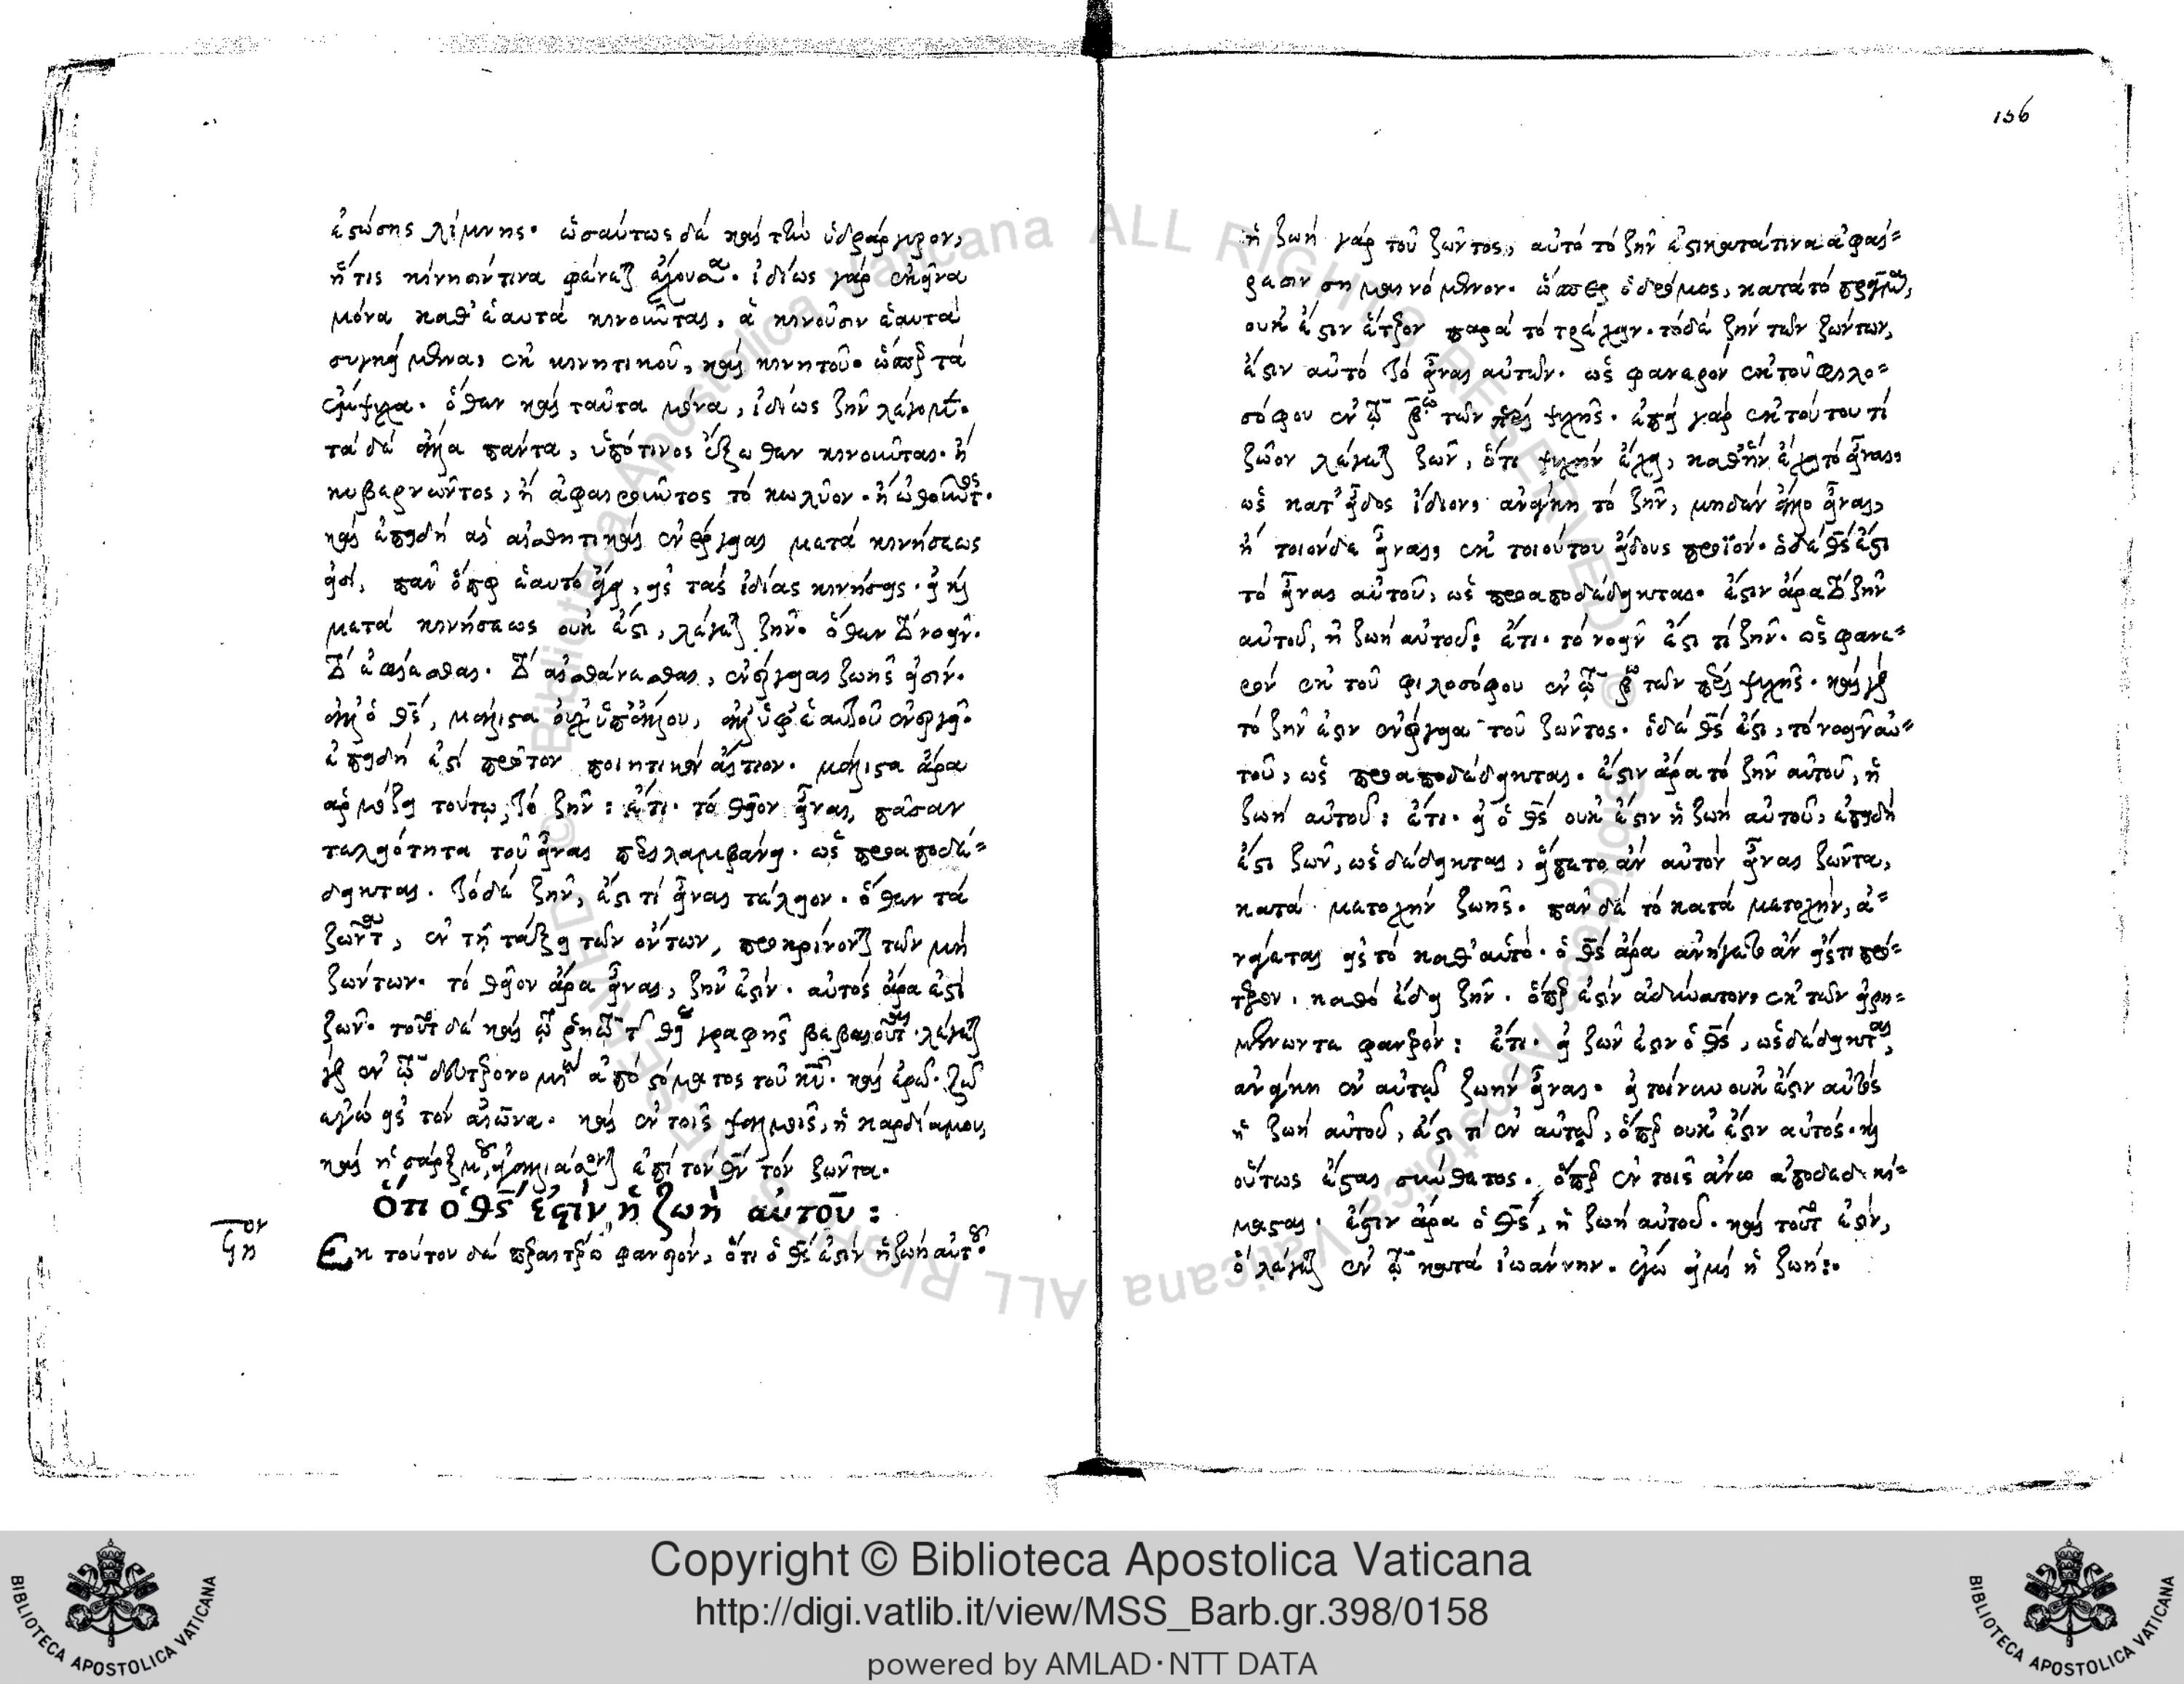 ἑστώσης λίμνης. ὡσαύτως δὲ καὶ τὴν ὑδράργυρον,
ἥτις κίνησίν τινα φαίνεται ἔχουσα. ἰδίως γὰρ ἐκεῖνα
μόνα καθ' ἑαυτὰ κινοῦνται, ἃ κινοῦσιν ἑαυτὰ
συγκείμενα, ἐκ κινητικοῦ, καὶ κινητοῦ. ὥσπερ τὰ
ἔμψυχα. ὅθεν καὶ ταῦτα μόνα, ἰδίως ζῆν λέγομεν.
τὰ δὲ ἄλλα πάντα, ὑπό τινος ἔξωθεν κινοῦνται. ἢ
κυβερνῶντος, ἢ ἀφαιροῦντος τὸ κωλῦον. ἢ ὠθοῦντος.
καὶ ἐπειδὴ αἱ αἰσθητικαὶ ἐνέργειαι μετὰ κινήσεως
εἰσὶ, πᾶν ὅπερ ἑαυτὸ ἄγει, εἰς τὰς ἰδίας κινήσεις. εἰ καὶ
μετὰ κινήσεως οὐκ ἔστι, λέγεται ζῆν. ὅθεν τὸ νοεῖν.
τὸ ἐφίεσθαι. τὸ αἰσθάνεσθαι, ἐνέργειαι ζωῆς εἰσίν.
ἀλλ' ὁ θς, μάλιστα οὐχ ὑπ' ἄλλου, ἀλλ' ὑφ' ἑαυτοῦ ἐνεργεῖ.
ἐπειδή ἐστι πρῶτον ποιητικὸν αἴτιον. μάλιστα ἄρα
ἁρμόζει τούτῳ, τὸ ζῆν: ἔτι. τὸ θεῖον εἶναι, πᾶσαν
τελειότητα τοῦ εἶναι περιλαμβάνει. ὡς προαποδέ=
δεικται. τὸ δὲ ζῆν, ἐστί τι εἶναι τέλειον. ὅθεν τὰ
ζῶντα, ἐν τῇ τάξει τῶν ὄντων, προκρίνονται τῶν μὴ
ζώντων. τὸ θεῖον ἄρα εἶναι, ζῆν ἐστίν. αὐτὸς ἄρα ἐστὶ
ζῶν. τοῦτο δὲ καὶ τῷ ῥητῷ τῆς θείας γραφῆς βεβαιοῦται. λέγεται
γὰρ ἐν τῷ δευτερονομίῳ ἀπὸ στόματος τοῦ κυ. καὶ ἐρῶ. ζῶ
ἐγὼ εἰς τὸν αἰῶνα. καὶ ἐν τοῖς ψαλμοῖς, ἡ καρδία μου,
καὶ ἡ σάρξ μου, ἠγαλλιάσαντο ἐπὶ τὸν θν τὸν ζῶντα.
Ὅτι ὁ θς ἐστὶν ἡ ζωὴ αὐτοῦ:
Ἐκ τούτου δὲ περαιτέρω φανερόν, ὅτι ὁ θς ἐστὶν ἡ ζωὴ αὐτοῦ.
156
ἡ ζωὴ γὰρ τοῦ ζῶντος, αὐτὸ τὸ ζῆν ἐστι κατά τινα ἀφαί=
ρεσιν σημαινόμενον. ὥσπερ ὁ δρόμος, κατὰ τὸ πρᾶγμα,
οὐκ ἔστιν ἕτερον παρὰ τὸ τρέχειν. τὸ δὲ ζῆν τῶν ζώντων,
ἐστὶν αὐτὸ τὸ εἶναι αὐτῶν. ὡς φανερὸν ἐκ τοῦ φιλο=
σόφου ἐν τῷ βῳ τῶν περὶ ψυχῆς. ἐπεὶ γὰρ ἐκ τούτου τὶ
ζῶον λέγεται ζῶν, ὅτι ψυχὴν ἔχει, καθ' ἣν ἔχει τὸ εἶναι,
ὡς κατ' εἶδος ἴδιον, ἀνάγκη τὸ ζῆν, μηδὲν ἄλλο εἶναι,
ἢ τοιόνδε εἶναι, ἐκ τοιούτου εἴδους προϊόν. ὁ δὲ θς ἐστὶ
τὸ εἶναι αὐτοῦ, ὡς προαποδέδεικται. ἔστιν ἄρα τὸ ζῆν
αὐτοῦ, ἡ ζωὴ αὐτοῦ: ἔτι. τὸ νοεῖν ἐστί τι ζῆν. ὡς φανε=
ρὸν ἐκ τοῦ φιλοσόφου ἐν τῷ βῳ τῶν περὶ ψυχῆς. καὶ γὰρ
τὸ ζῆν ἐστὶν ἐνέργεια τοῦ ζῶντος. ὁ δὲ θς ἐστὶ, τὸ νοεῖν αὐ=
τοῦ, ὡς προαποδέδεικται. ἔστιν ἄρα τὸ ζῆν αὐτοῦ, ἡ
ζωὴ αὐτοῦ: ἔτι. εἰ ὁ θς οὐκ ἔστιν ἡ ζωὴ αὐτοῦ, ἐπειδὴ
ἐστὶ ζῶν, ὡς δέδεικται, εἵπετο ἂν αὐτὸν εἶναι ζῶντα,
κατὰ μετοχὴν ζωῆς. πᾶν δὲ τὸ κατὰ μετοχὴν, ἀ=
νάγεται εἰς τὸ καθ' αὑτό. ὁ θς ἄρα ἀνήγετο ἂν εἴς τι πρό=
τερον. καθὸ ἔδει ζῆν. ὅπερ ἐστὶν ἀδύνατον, ἐκ τῶν εἰρη=
μένων τε φανερόν: ἔτι. εἰ ζῶν ἐστὶν ὁ θς, ὡς δέδεικται,
ἀνάγκη ἐν αὐτῷ ζωὴν εἶναι. εἰ τοίνυν οὐκ ἔστιν αὐτὸς
ἡ ζωὴ αὐτοῦ, ἔσται τὶ ἐν αὐτῷ, ὅπερ οὐκ ἔστιν αὐτός. καὶ
οὕτως ἔσται σύνθετος. ὅπερ ἐν τοῖς ἄνω ἀποδεδοκί=
μασται. ἔστιν ἄρα ὁ θς, ἡ ζωὴ αὐτοῦ. καὶ τοῦτό ἐστιν,
ὃ λέγεται ἐν τῷ κατὰ ἰωάννην. ἐγώ εἰμι ἡ ζωή:.
Copyright © Biblioteca Apostolica Vaticana
http://digi.vatlib.it/view/MSS_Barb.gr.398/0158
powered by AMLAD·NTT DATA